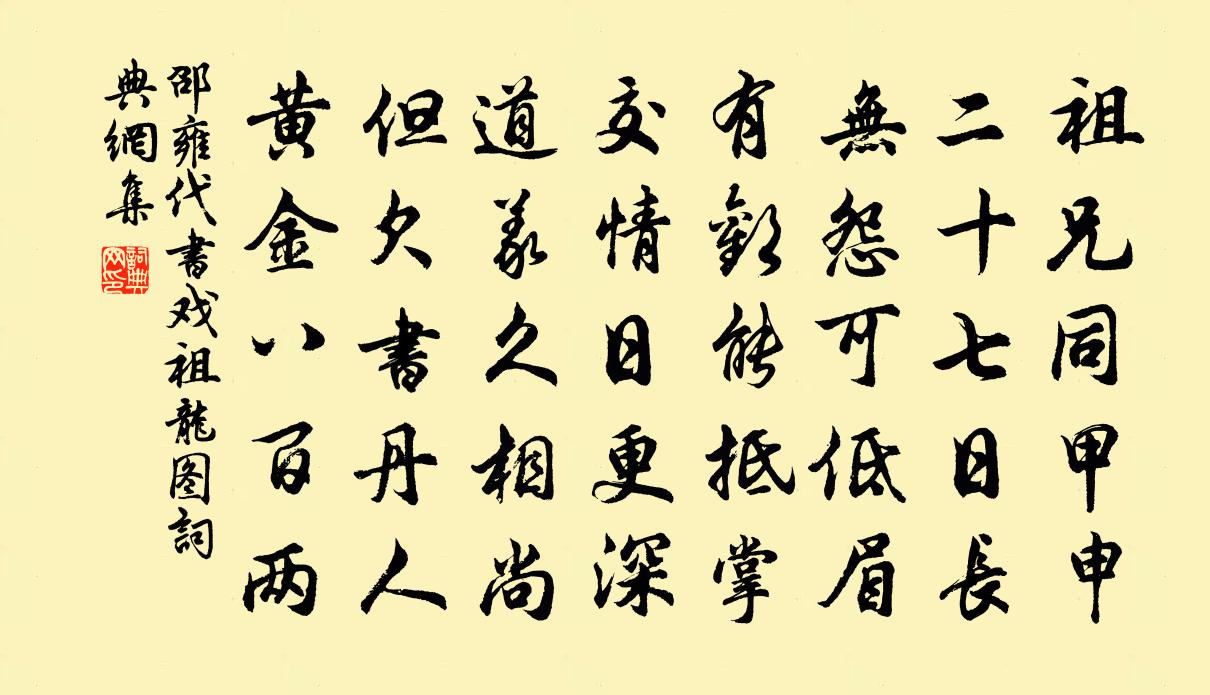 祖兄同甲申
二十七日長
無怨可低眉
有歡能抵掌
交情日更深
道義久相尚
但欠書丹人
黃金八百两
邵雍代書戏祖龍图詞
典網集
詞典網印